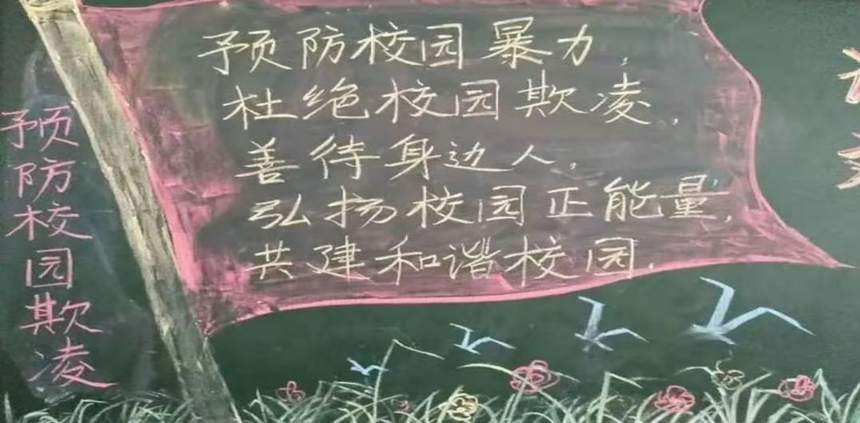 预防校园欺凌
预防校园暴力,
杜绝校园欺凌,
善待身边人,
弘扬校园正能量,
共建和谐校园.